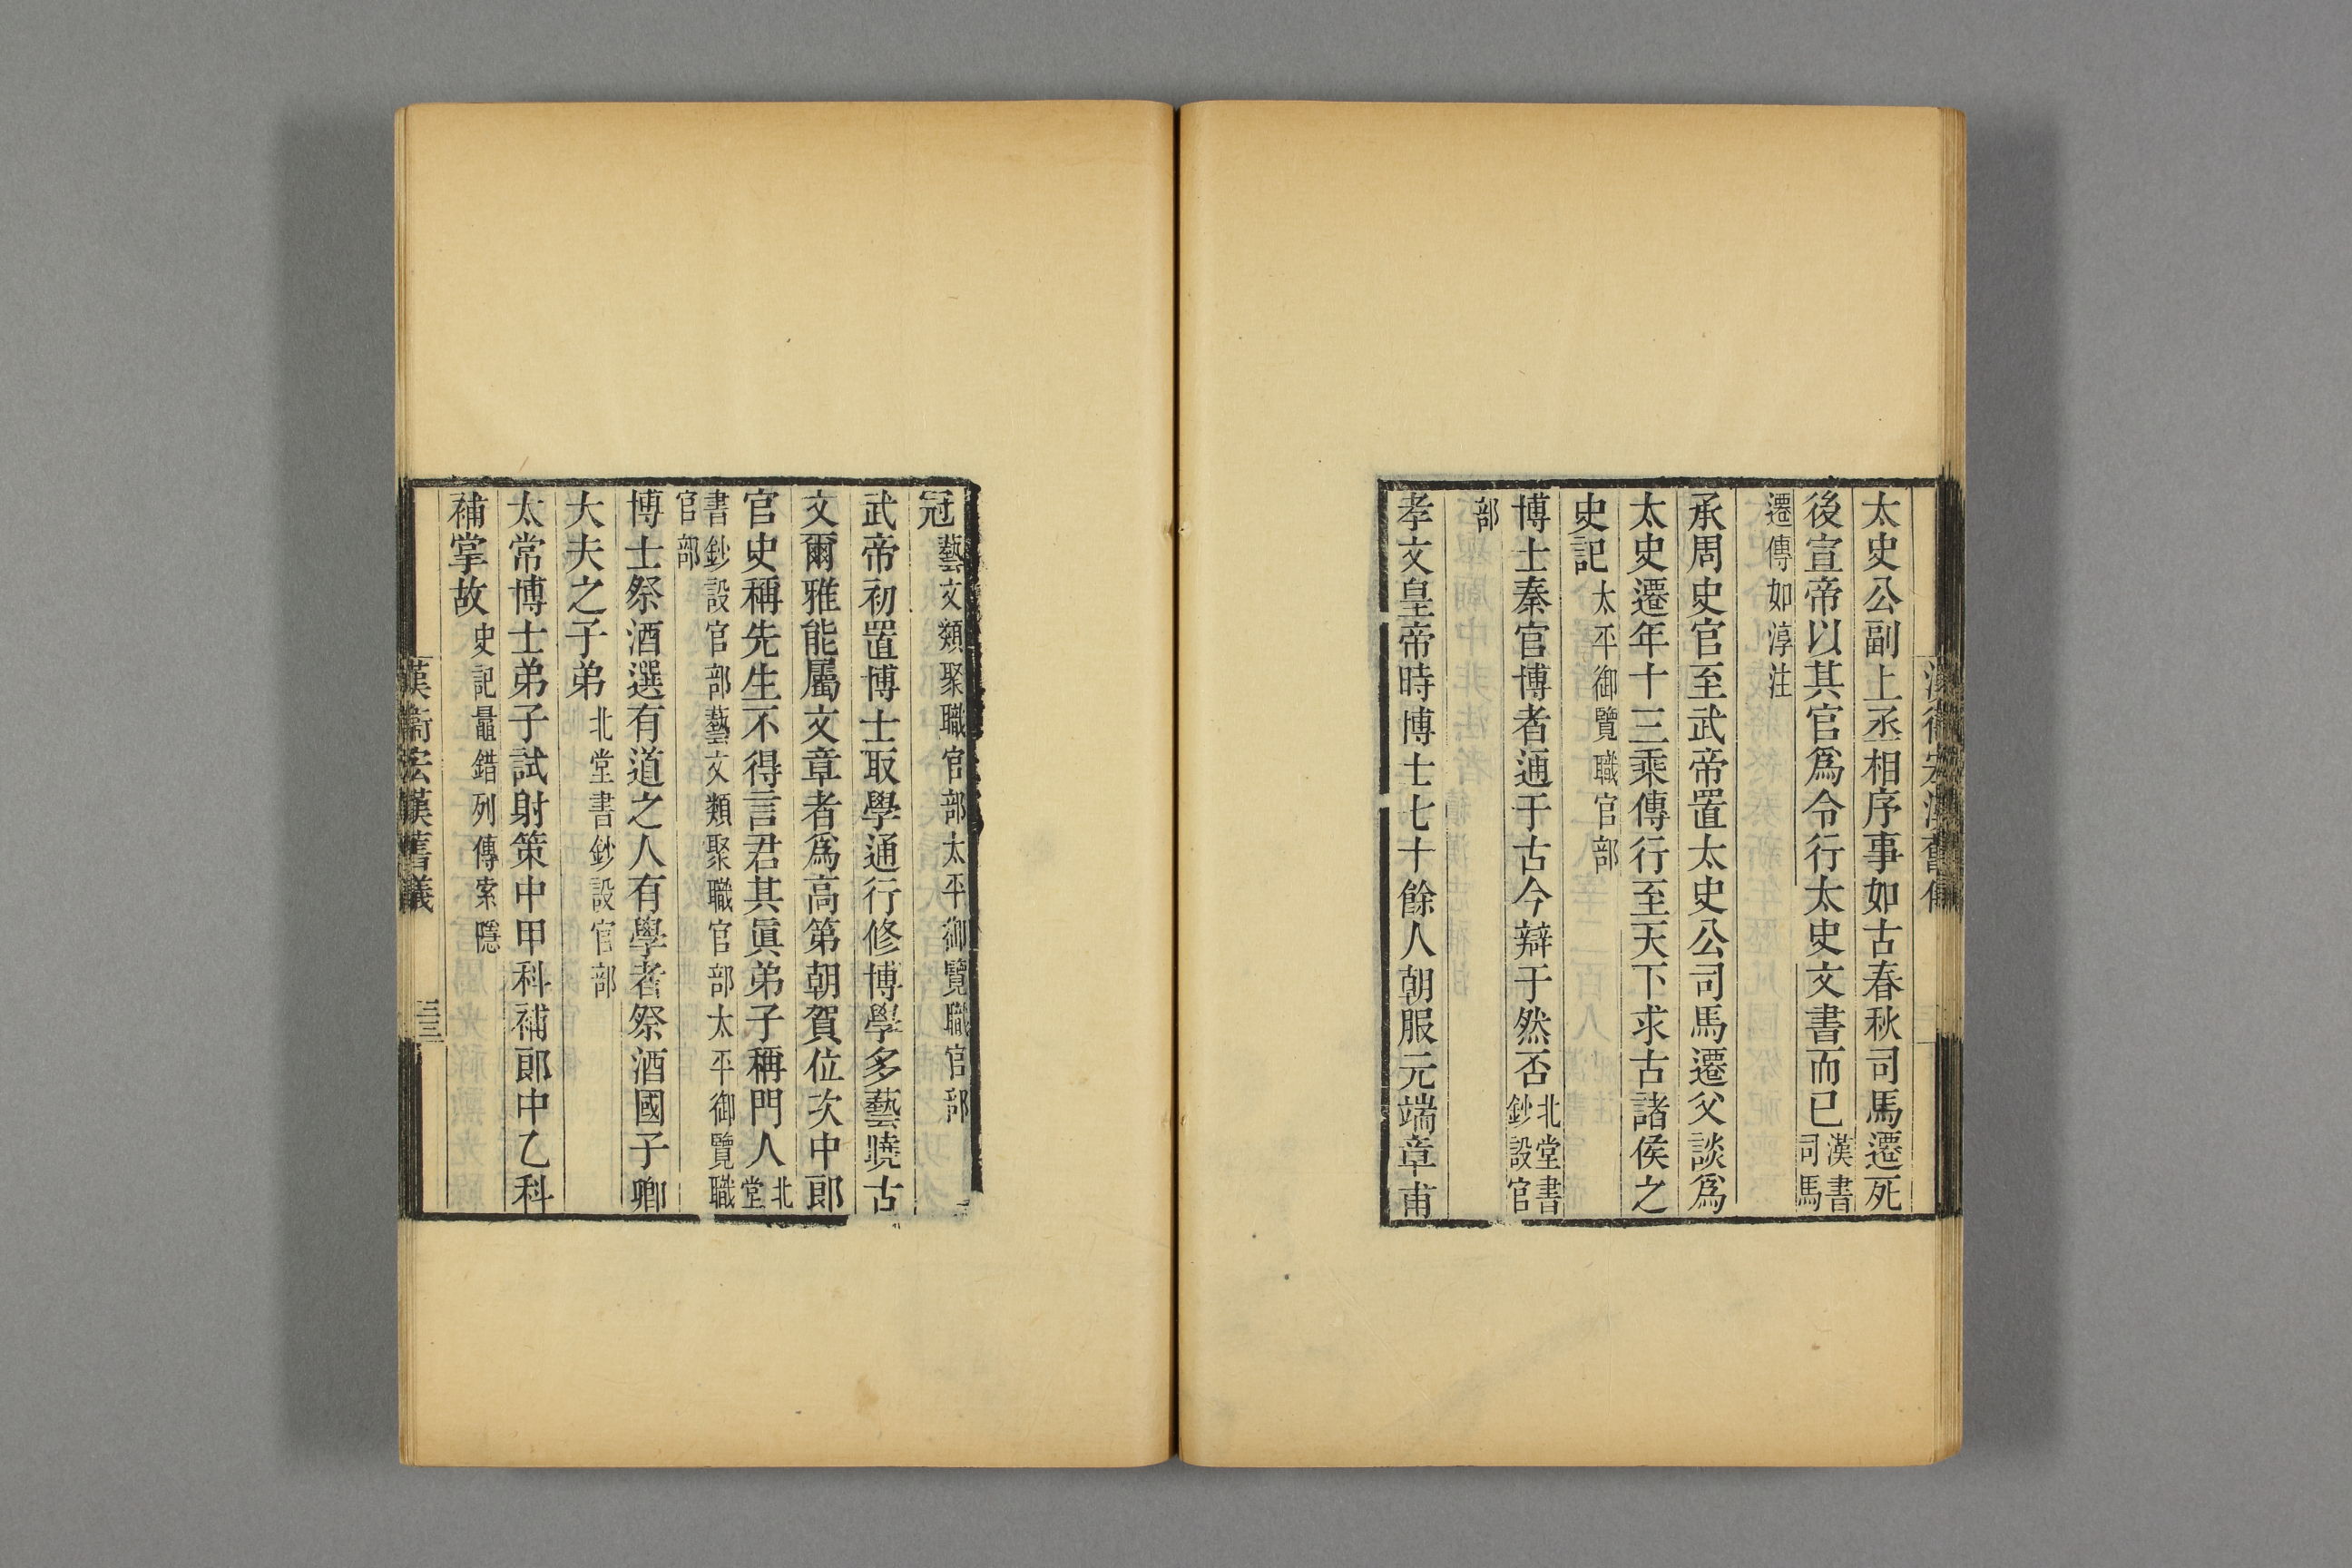 太史公副上丞相序事如古春秋司馬遷死
後宣帝以其官爲令行太史文書而已漢書司馬
遷傳如淳注
承周史官至武帝置太史公司馬遷父談爲
太史遷年十三乘傳行至天下求古諸侯之
史記太平御覽職官部
博士秦官博者通于古今辯于然否北堂書鈔設官
部
孝文皇帝時博士七十餘人朝服元端章甫
冠藝文類聚職官部太平御覽職官部
武帝初置博士取學通行修博學多藝曉古
文爾雅能屬文章者爲高第朝賀位次中郎
官史稱先生不得言君其眞弟子稱門人北堂
書鈔設官部藝文類聚職官部太平御覽職官部
博士祭酒選有道之人有學者祭酒國子卿
大夫之子弟北堂書鈔設官部
太常博士弟子試射策中甲科補郎中乙科
補掌故史記鼂錯列傳索隱
漢衞宏漢舊儀